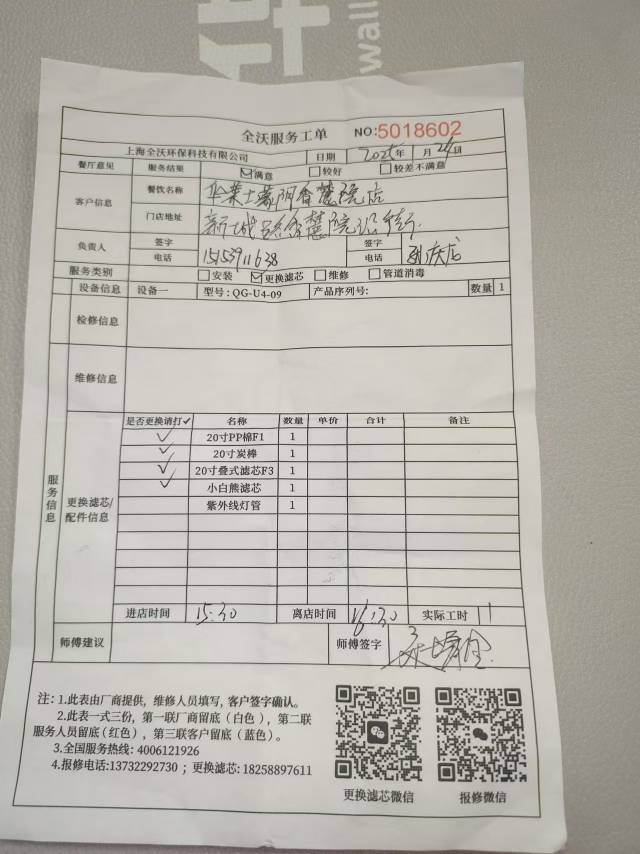 wall
全沃服务工单 NO:5018602
上海全沃环保科技有限公司 日期 2025年 1月 日
餐厅意见 服务结果 ☑满意 □较好 □较差不满意
客户信息 餐饮名称 店
门店地址 新城
负责人 签字 签字
电话 15153911638 电话
服务类别 □安装 ☑更换滤芯 □维修 □管道消毒
设备信息 设备一 型号:QG-U4-09 产品序列号: 数量 1
检修信息
维修信息
服务信息
更换滤芯/配件信息
是否更换请打✓ 名称 数量 单价 合计 备注
✓ 20寸PP棉F1 1
✓ 20寸炭棒 1
✓ 20寸叠式滤芯F3 1
✓ 小白熊滤芯 1
紫外线灯管 1
进店时间 15:30 离店时间 16:30 实际工时 1
师傅建议 师傅签字
注:1.此表由厂商提供,维修人员填写,客户签字确认。
2.此表一式三份,第一联厂商留底(白色),第二联
服务人员留底(红色),第三联客户留底(蓝色)。
3.全国服务热线:4006121926
4.报修电话:13732292730;更换滤芯:18258897611
更换滤芯微信 报修微信